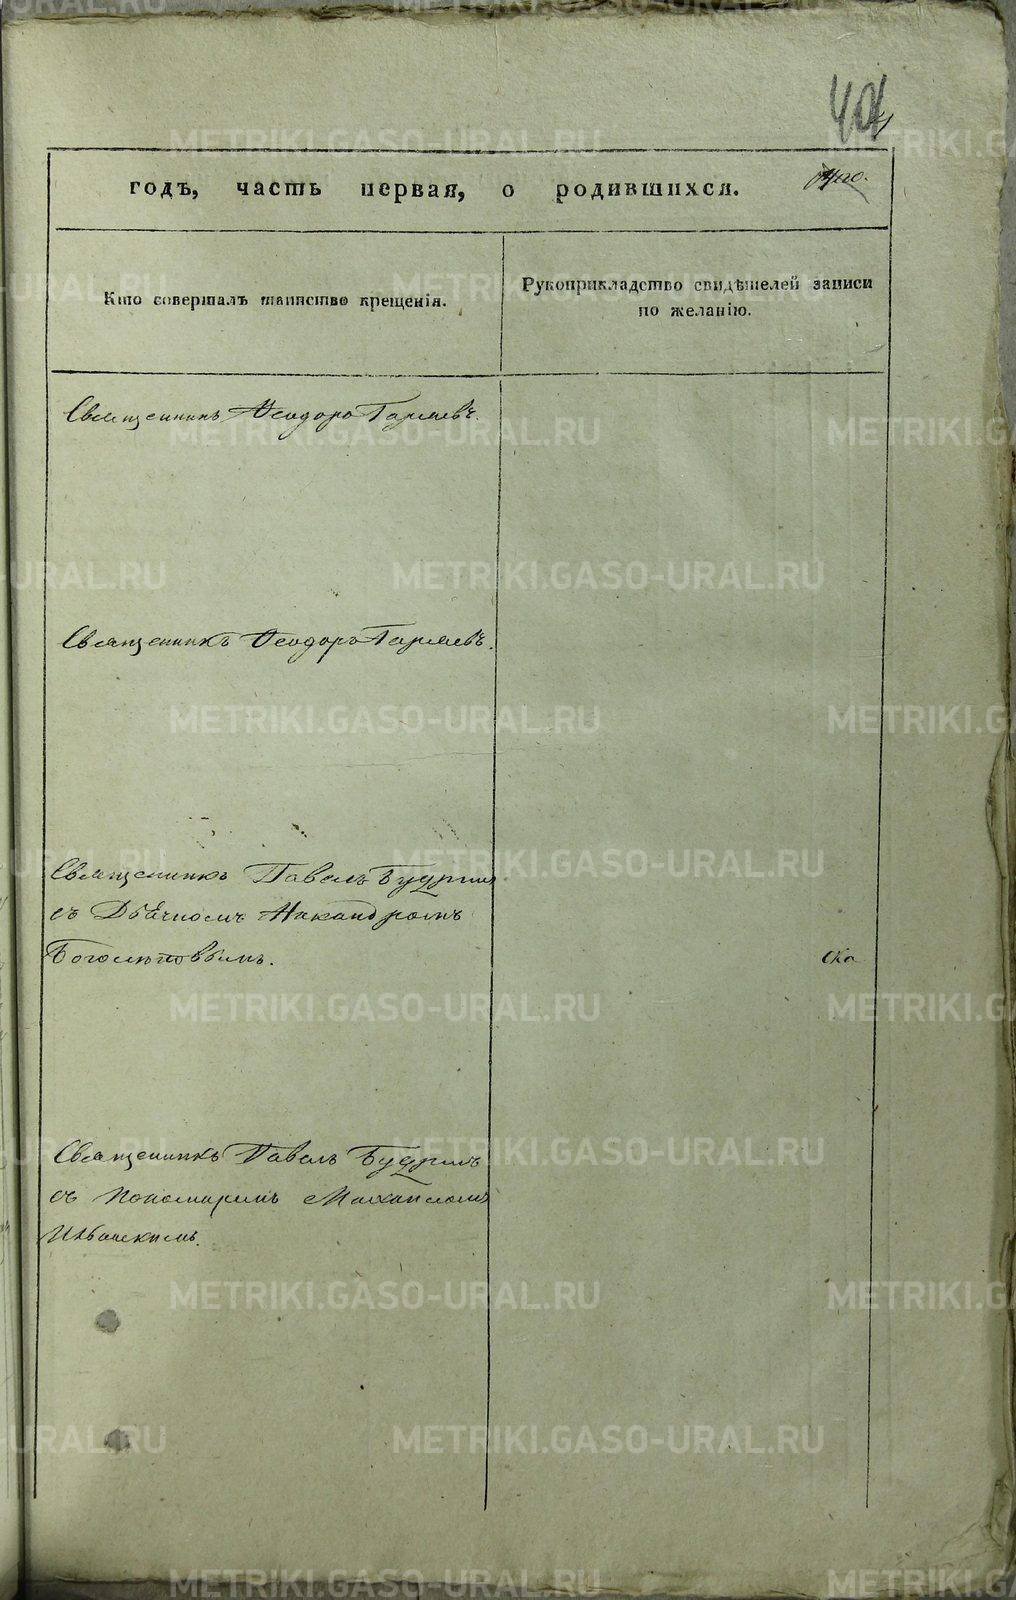 401
годъ, часть первая, о родившихся.
Кто совершалъ таинство крещенія.
Рукоприкладство свидѣтелей записи
по желанію.
Священникъ Ѳеодоръ Гаряевъ.
Священникъ Ѳеодоръ Гаряевъ.
Священникъ Павелъ Будринъ
съ Дьячкомъ Никандромъ
Боголѣповымъ.
Священникъ Павелъ Будринъ
съ Пономаремъ Михаиломъ
METRIKI.GASO-URAL.RU